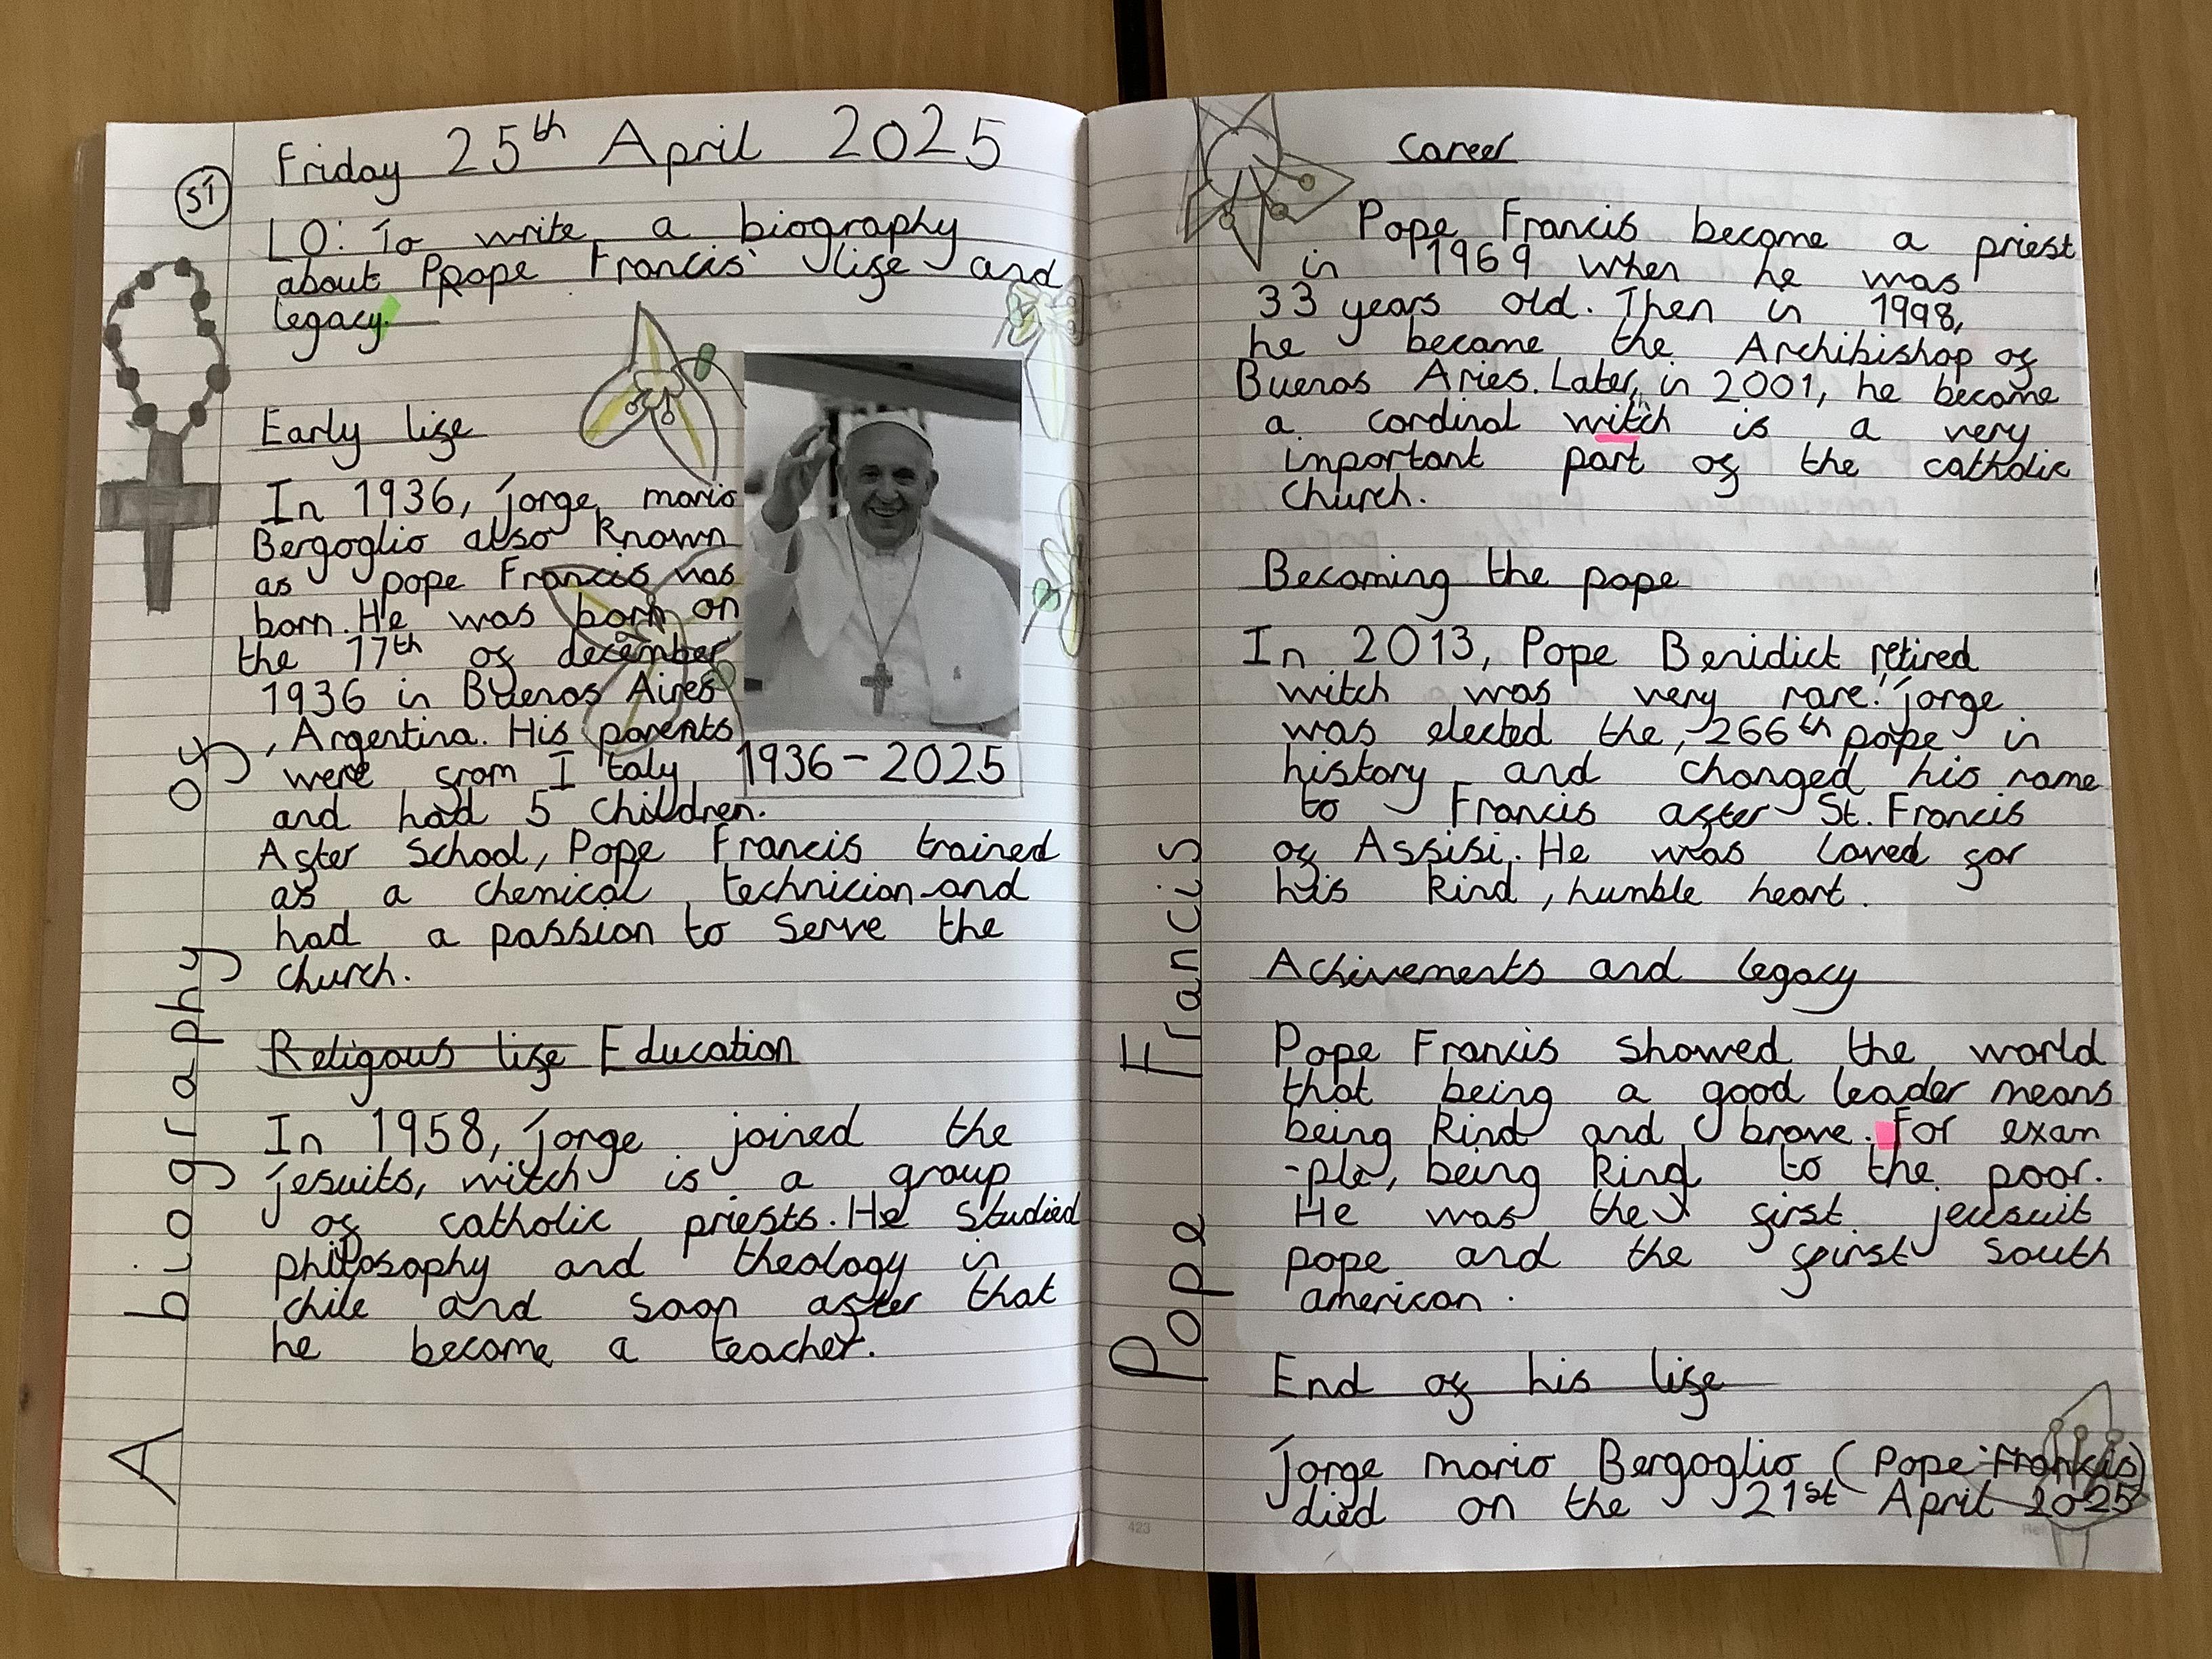 Friday 25th April 2025
ST
LO: To write a biography
about Ppope Francis' life and
legacy.
Early life
In 1936, jorge mario
Bergoglio also known
as pope Francis was
born. He was born on
the 17th of december
1936 in Buenos Aires
, Argentina. His parents
were from Italy
and had 5 children.
1936-2025
After School, Pope Francis trained
as a chemical technician and
had a passion to serve the
church.
Religous life Education
In 1958, jorge joined the
jesuits, witch is a group
of catholic priests. He studied
philosophy and theology in
chile and soon after that
he became a teacher.
A biography of
Career
Pope Francis became a priest
in 1969 when he was
33 years old. Then in 1998,
he became the Archibishop of
Buenos Aries. Later, in 2001, he became
a cardinal witch is a very
inportant part of the catholic
church.
Becoming the pope
In 2013, Pope Benidict retired
witch was very rare! jorge
was elected the 266th pope in
history and changed his name
to Francis after St. Francis
of Assisi. He was loved for
his kind, humble heart.
Achivements and legacy
Pope Francis showed the world
that being a good leader means
being kind and brave. For exam
-ple, being kind to the poor.
He was the first jeusuit
pope and the first south
american.
End of his life
jorge mario Bergoglio (Pope Francis)
died on the 21st April 2025
Pope Francis
423